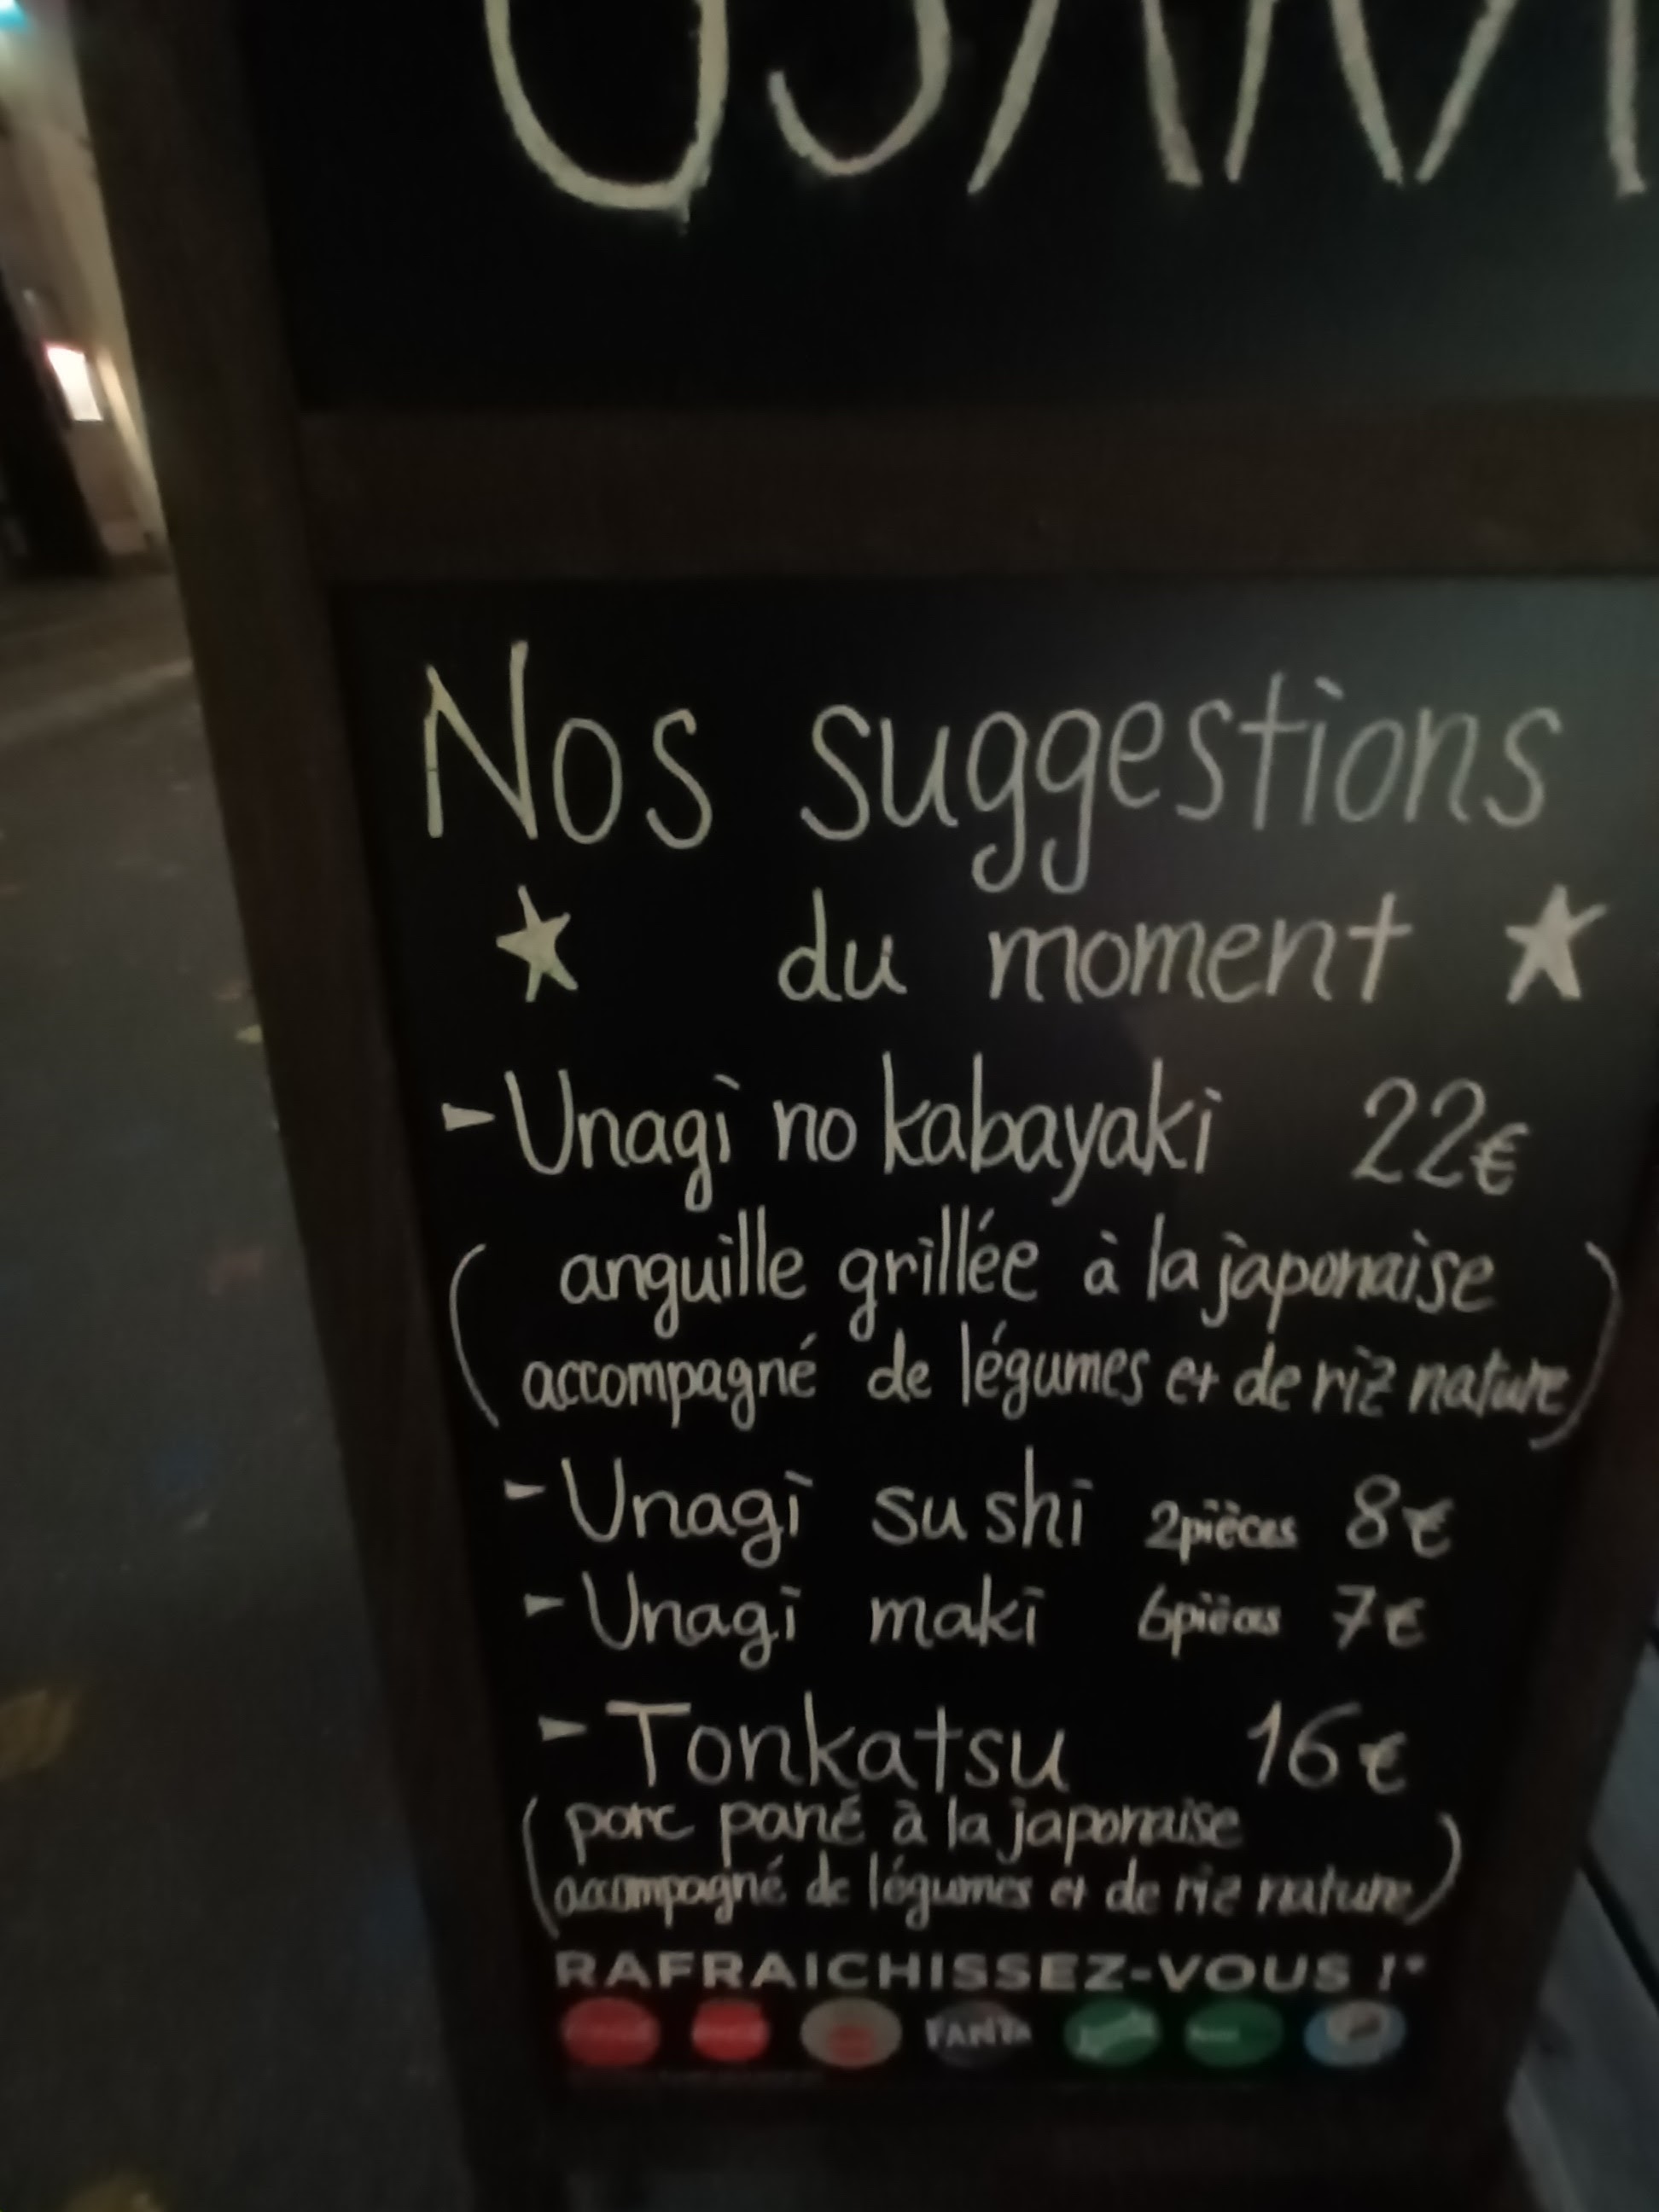 Nos suggestions
★ du moment ★
- Unagi no kabayaki 22€
( anguille grillée à la japonaise
accompagné de légumes et de riz nature)
- Unagi sushi 2pièces 8€
- Unagi maki 6pièces 7€
- Tonkatsu 16€
( porc pané à la japonaise
accompagné de légumes et de riz nature)
RAFRAICHISSEZ-VOUS !*
FANTA